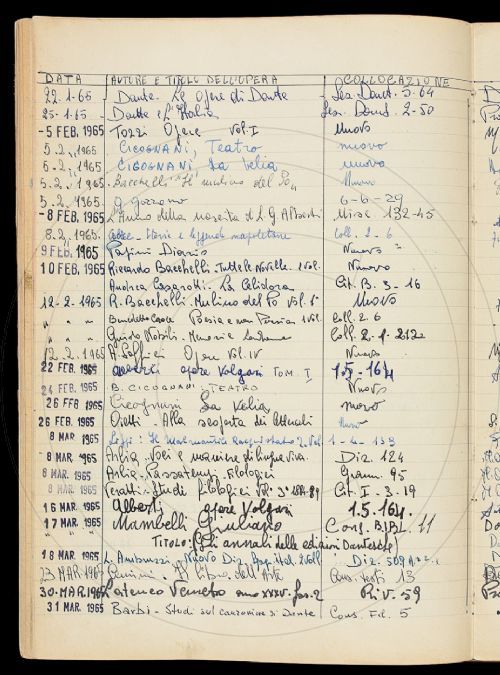 DATA AUTORE E TITOLO DELL'OPERA COLLOCAZIONE
22.1-65 Dante. Le Opere di Dante Les. Dant. 5-64
25-1-65 Dante e l'Italia Les. Dant. 2-50
-5 FEB. 1965 Tozzi Opere Vol. I Nuovo
5.2., 1965 CICOGNANI, Teatro nuovo
5.2., 1965 CICOGNANI La Velia nuovo
5.2., 1965. Bacchelli "Il mulino del Po" Nuovo
5.2. 1965 G. Gozzano 6-6-29
-8 FEB. 1965 L'Anno della nascita di L. G. Alberti Misc 132-45
8.2. 1965. Croce - Storie e leggende napoletane Coll. 2-6
9 FEB. 1965 Papini Diario Nuovo
10 FEB. 1965 Riccardo Bacchelli. Tutte le Novelle. 1 Vol. Nuovo
Andrea Casarotti. La Celidora Cit. B. 3-16
12-2-1965 R. Bacchelli. Mulino del Po Vol. 1° Nuovo
" " " Benedetto Croce Poesia e non Poesia 1 Vol. Coll. 2.6
" " " Guido Nobili. Memorie Coll. 2-1-212
12.2.1965 A. Soffici Opere Vol. IV Nuovo
22 FEB. 1965 Alberti opere volgari TOM. I 1.5-164
24 FEB. 1965 B. CICOGNANI: TEATRO Nuovo
26 FEB 1965 Cicognani La Velia nuovo
26 FEB. 1965 Ojetti - Alla scoperta dei letterati
8 MAR 1965 Lippi: Il Malmantile Racquistato 2. Vol. 1-4-139
-8 MAR. 1965 Arlia. Voci e maniere di lingua viva. Diz. 124
8 MAR. 1965 Arlia. Passatempi filologici Gramm. 95
8 MAR. 1965 Studi filologici Vol. 3° 1884-89 Cit. I-3-19
16 MAR. 1965 Alberti opere Volgari 1.5.164
17 MAR. 1965 Mambelli Giuliano Cons. BIBL. 11
" " " TITOLO: (Gli annali delle edizioni Dantesche)
18 MAR. 1965 L. Ambruzzi Nuovo Diz. Spg. Ital. 2 Voll. Diz. 509
23 MAR. 1965 Cennini. Il Libro dell'Arte 13
30. MAR. 1965 Ateneo Veneto anno XXXV. fas. 2 Riv. 59
31 MAR. 1965 Barbi - Studi sul canzoniere di Dante Cons. Fil. 5